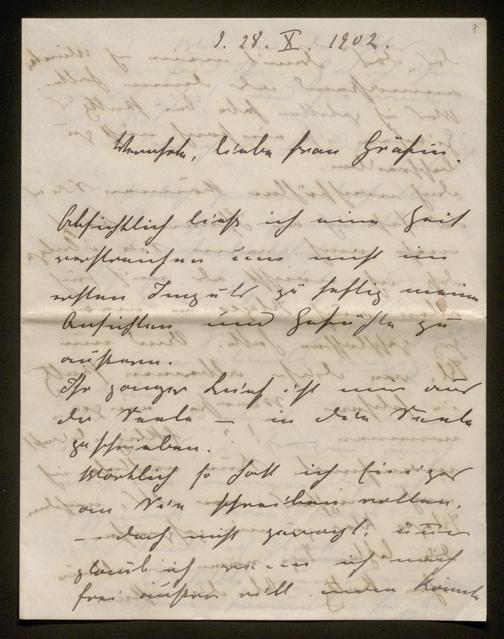 28. X. 1902.
Verehrte, liebe Frau Gräfin.
Absichtlich ließ ich eine Zeit
verstreichen um nicht im
ersten Impuls zu heftig meine
Ansichten und Gefühle zu
äußern.
Ihr ganzer Brief ist mir aus
der Seele — in die Seele
geschrieben.
Wörtlich so hatt ich
an Sie schreiben wollen,
— doch nicht gewagt. nun
glaub ich wenn ich mich
frei äußern will